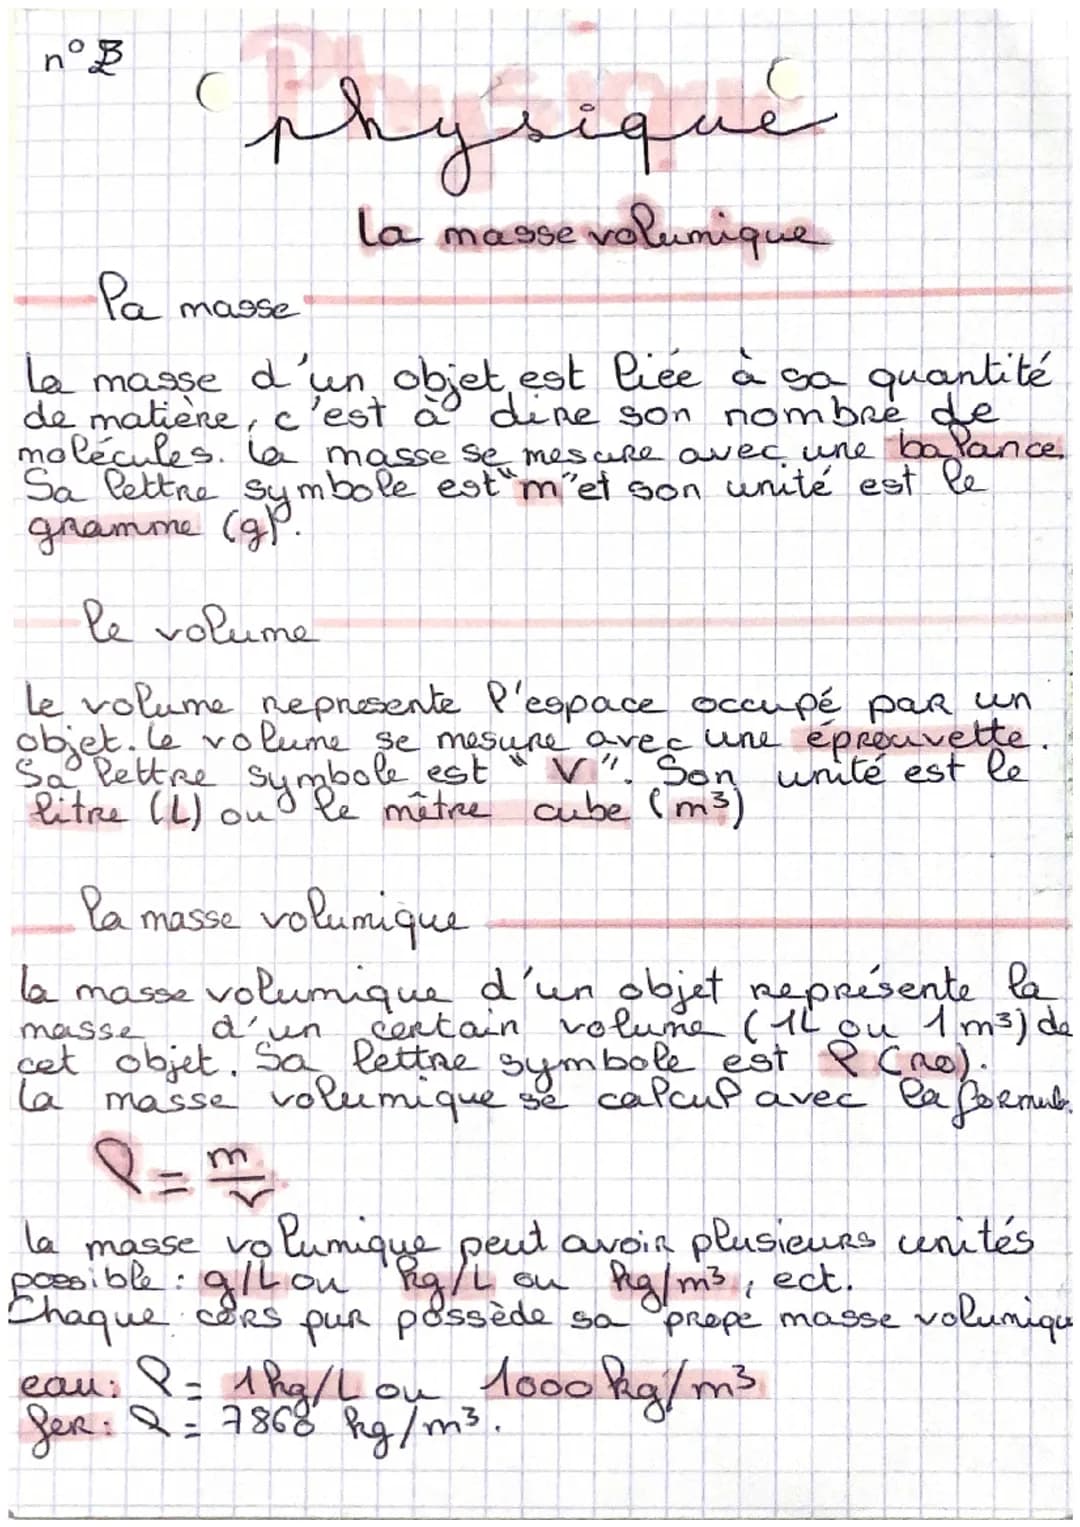 n° B
physique
La masse volumique
la masse
La masse d'un objet est liée à sa quantité
de matière, c'est à dire son nombre de
molécules. La masse se mesure avec une balance.
Sa lettre symbole est "m" et son unité est le
gramme (g).
le volume
Le volume represente l'espace occupé par un
objet. Le volume se mesure avec une éprouvette.
Sa lettre symbole est "V". Son unité est le
litre (L) ou le mètre cube (m³)
la masse volumique
la masse volumique d'un objet représente la
masse d'un certain volume (1L ou 1m³) de
cet objet. Sa lettre symbole est ρ (ro).
La masse volumique se calcul avec la formule.
ρ = m/V
la masse volumique peut avoir plusieurs unités
possible : g/L ou kg/L ou kg/m³, ect.
Chaque cors pur possède sa prope masse volumique
eau: ρ = 1kg/L ou 1000 kg/m³
fer: ρ = 7868 kg/m³.